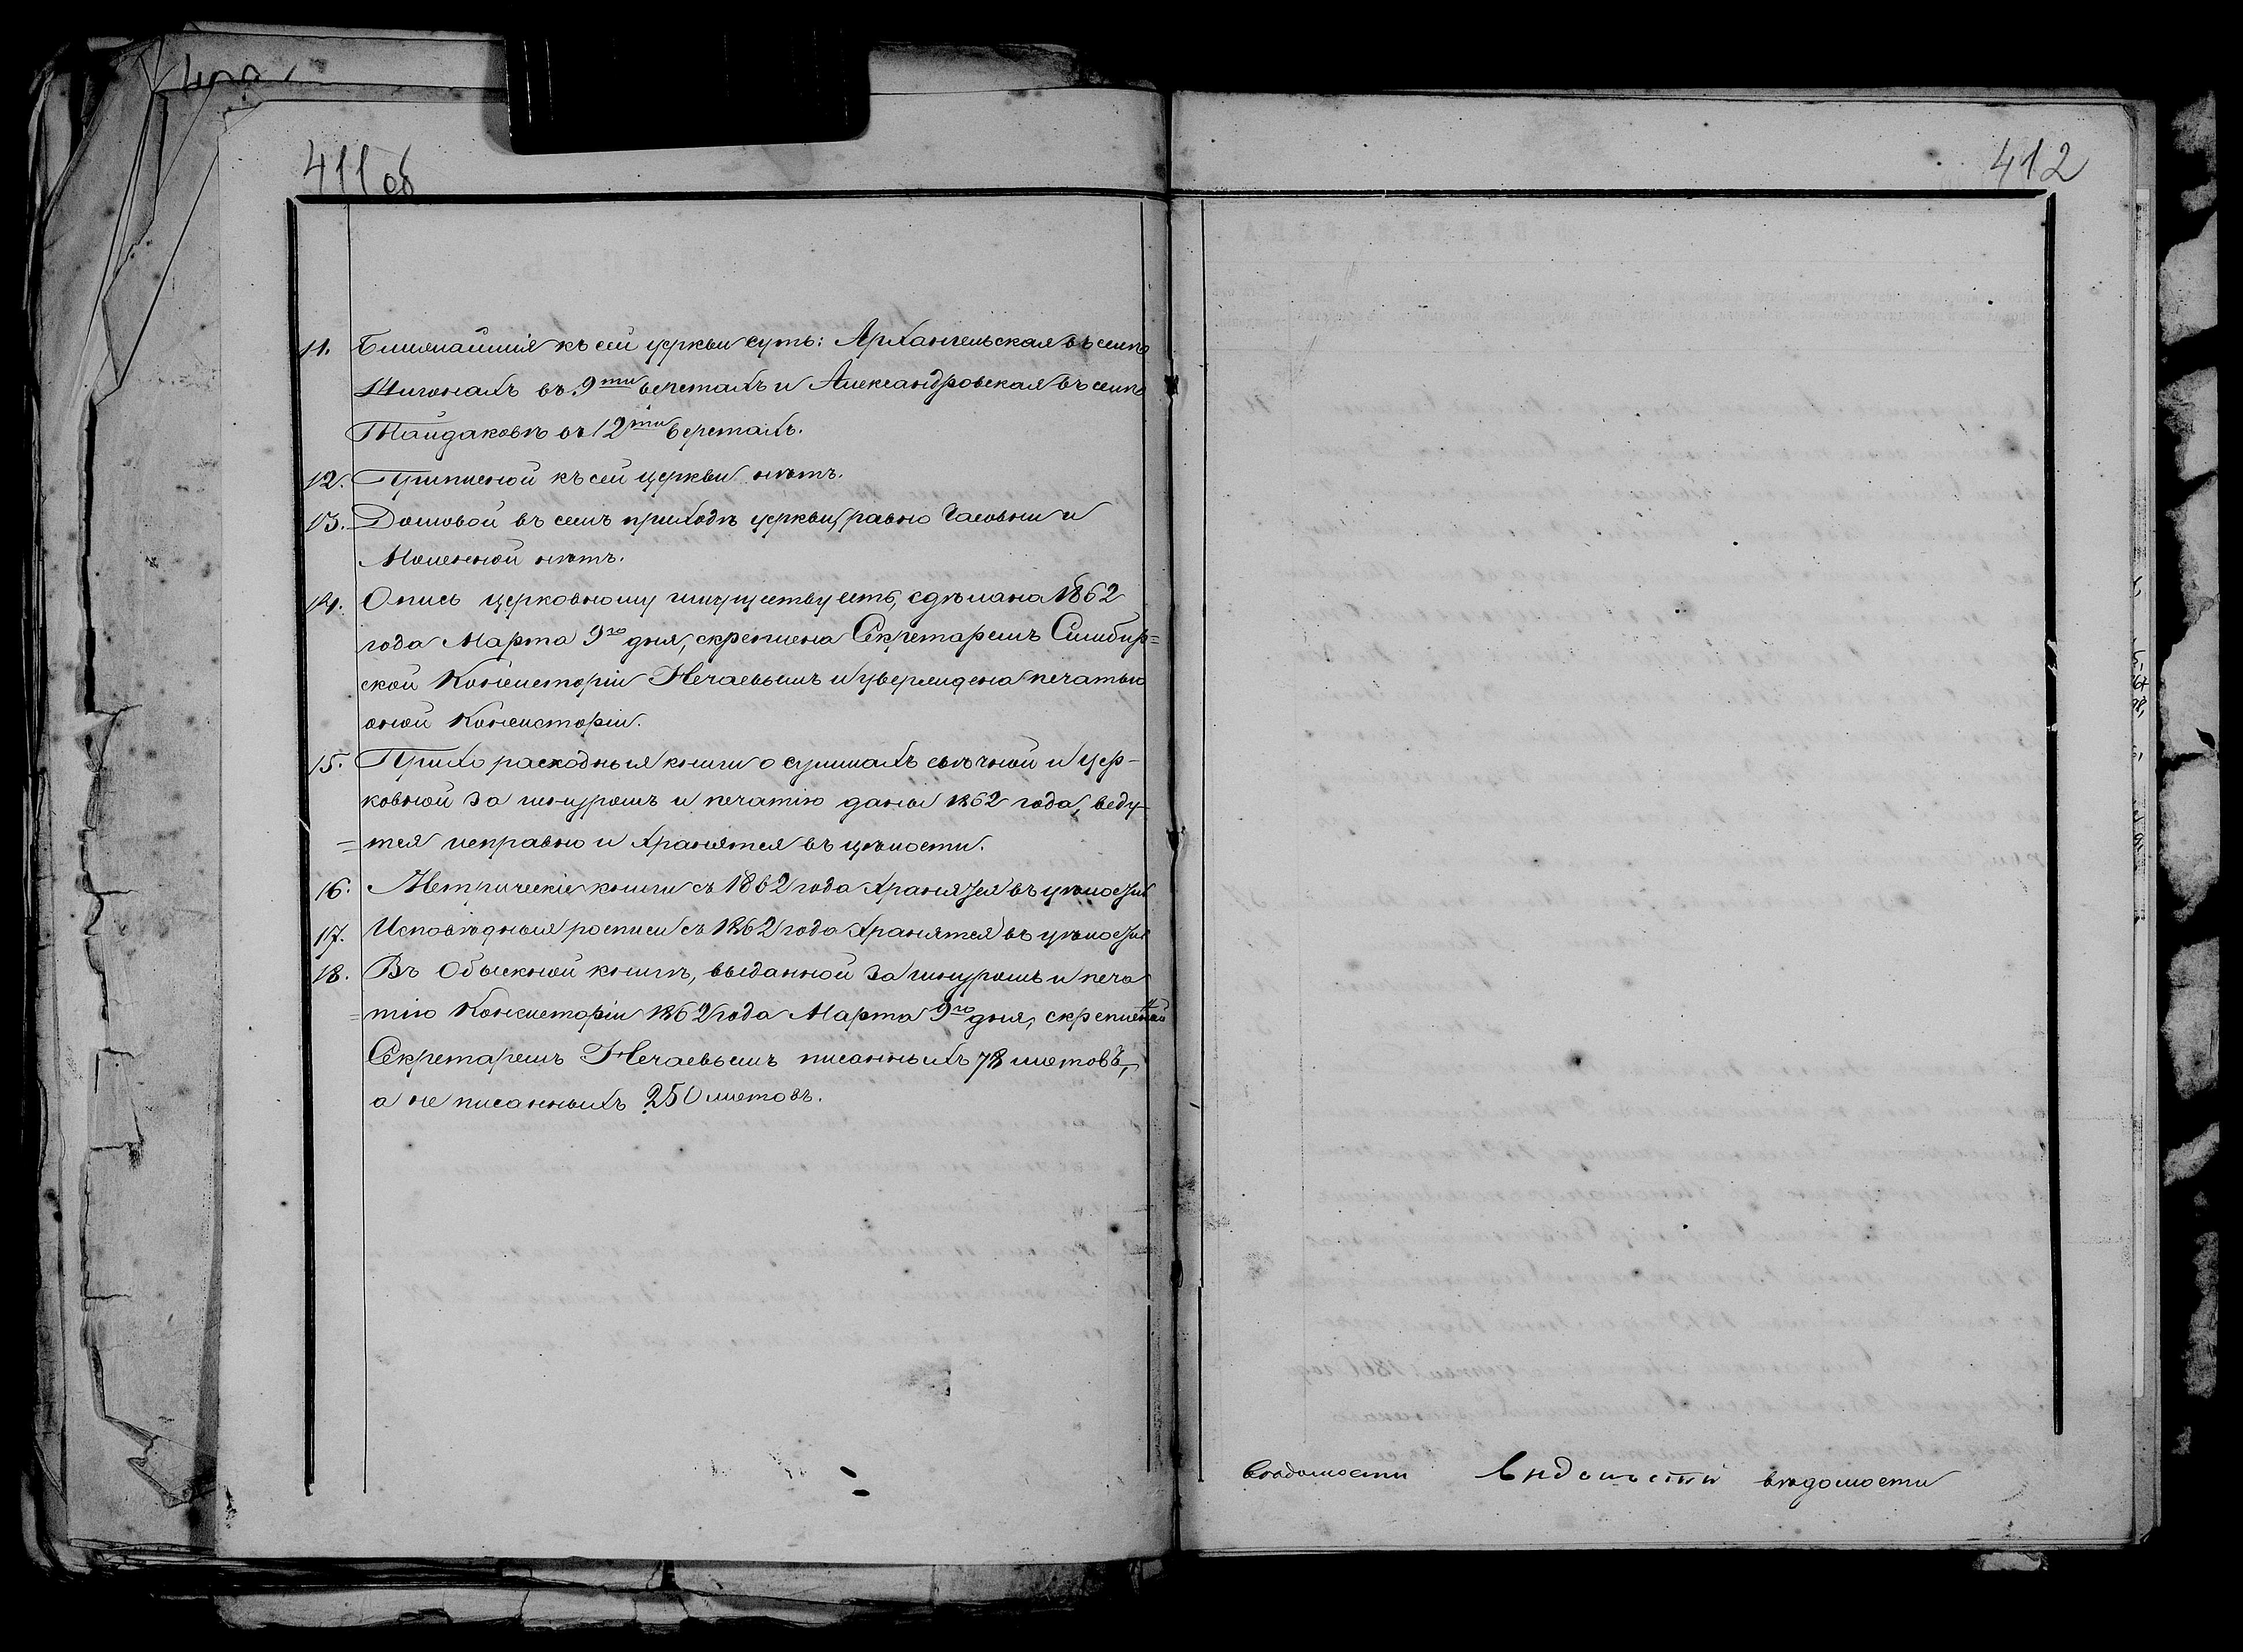 411об
11. Ближайшія къ сей церкви суть: Архангельская въ селѣ
Шигонахъ въ 9ти верстахъ и Александровская въ селѣ
Тайдаковѣ въ 12ти верстахъ.
12. Приписной къ сей церкви нѣтъ.
13. Домовой въ семъ приходѣ церкви, равно Часовни и
Моленной нѣтъ.
14. Опись церковному имуществу есть, сдѣлана 1862
года Марта 9го дня, скреплена Секретаремъ Симбир=
ской Консисторіи Нечаевымъ и утверждена печатью
оной Консисторіи.
15. Прихо расходныя книги о суммахъ свѣчной и цер-
ковной за шнуромъ и печатію даны 1862 года, веду-
=тся исправно и хранятся въ цѣлости.
16. Метрическіе книги съ 1862 года хранятся въ цѣлости
17. Исповѣдныя росписи съ 1862 года хранятся въ цѣлости
18. Въ Обыскной книгѣ, выданной за шнуромъ и печа
=тію Консисторіи 1862 года Марта 9го дня, скрепленной
Секретаремъ Нечаевымъ писанныхъ 78 листовъ,
а не писанныхъ 250 листовъ.
412
вѣдомости ведомости вѣдомости